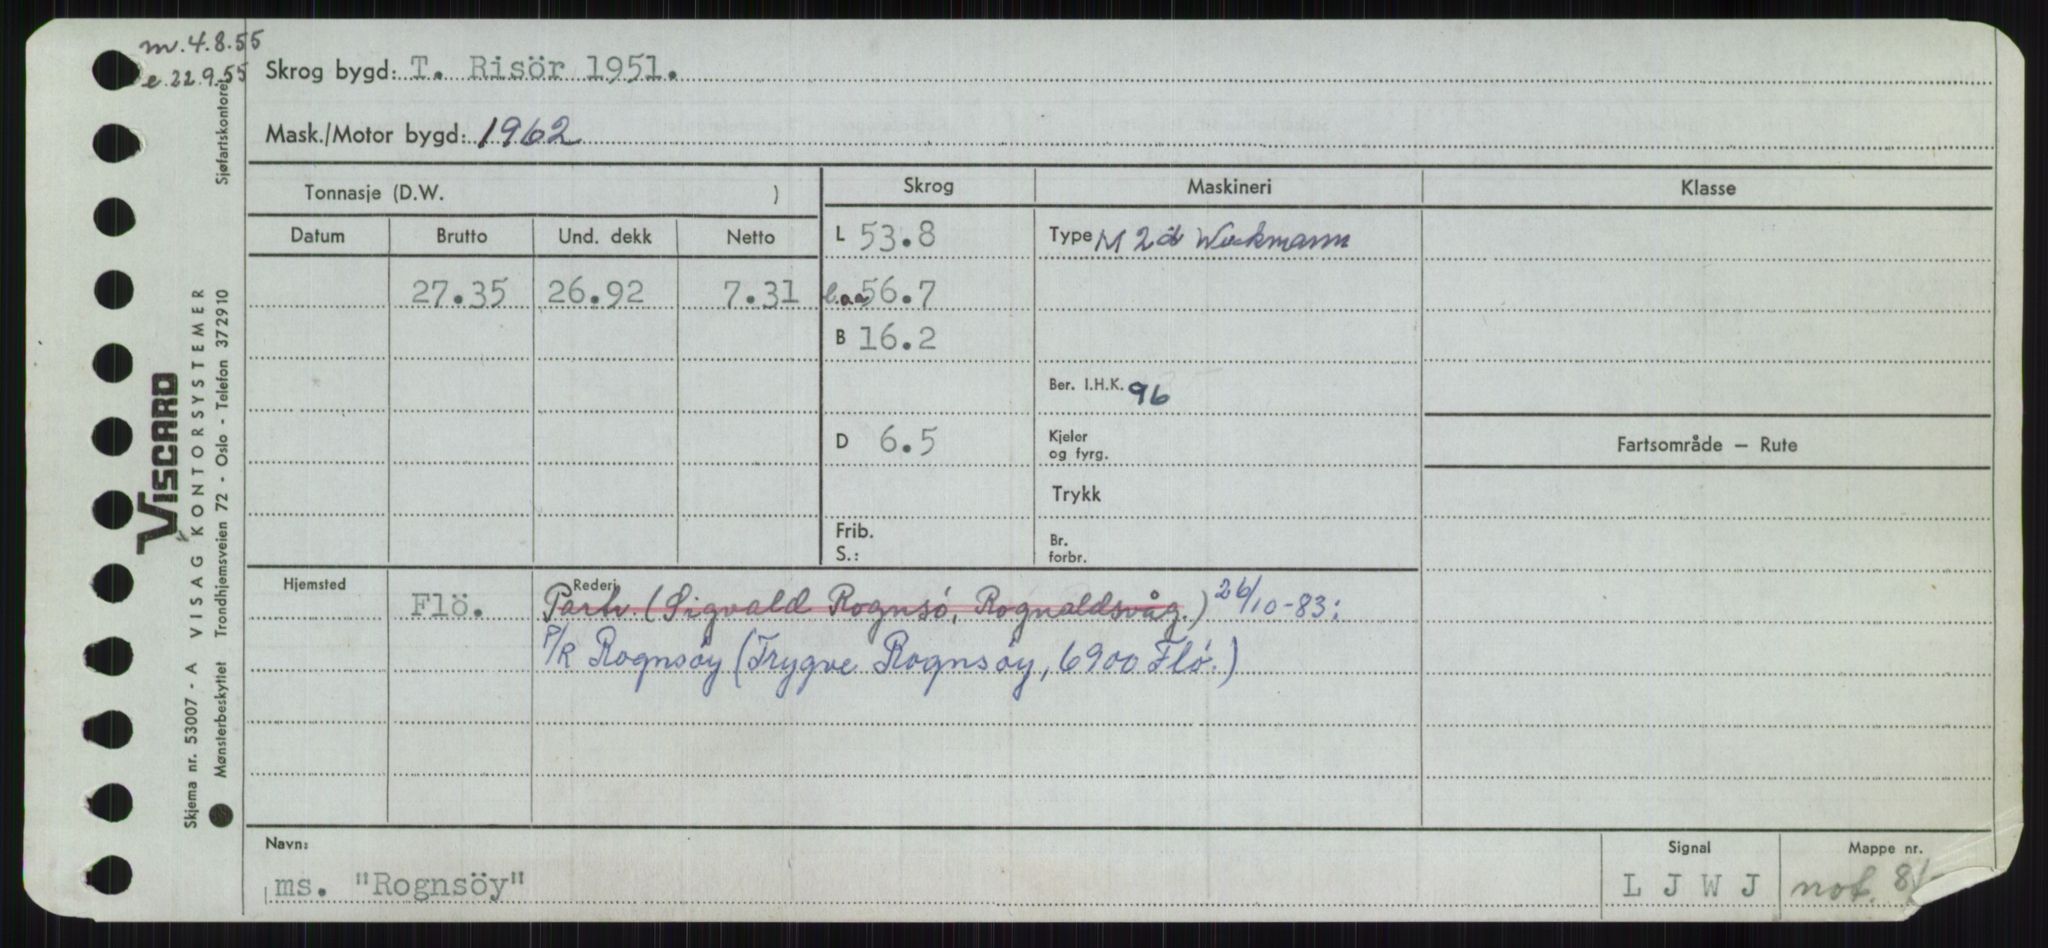 m. 4.8.55
e. 22.9.55
Skrog bygd: T. Risör 1951.
Mask./Motor bygd: 1962
Tonnasje (D.W. )
Skrog
Maskineri
Klasse
Datum Brutto Und. dekk Netto
L 53.8
Type M 2d Wickmann
27.35 26.92 7.31
l.aa 56.7
B 16.2
Ber. I.H.K. 96
D 6.5
Kjeler
og fyrg.
Fartsområde — Rute
Trykk
Frib.
S.:
Br.
forbr.
Hjemsted
Rederi
Flö.
Partr. (Sigvald Rognsö, Rognaldsvåg.) 26/10-83:
P/R Rognsöy (Trygve Rognsöy, 6900 Flö.)
Navn:
ms. "Rognsöy"
Signal
L J W J
Mappe nr.
not.
VISCARD
VISAG KONTORSYSTEMER
Skjema nr. 53007 - A
Mønsterbeskyttet Trondhjemsveien 72 - Oslo - Telefon 372910
Sjøfartskontoret